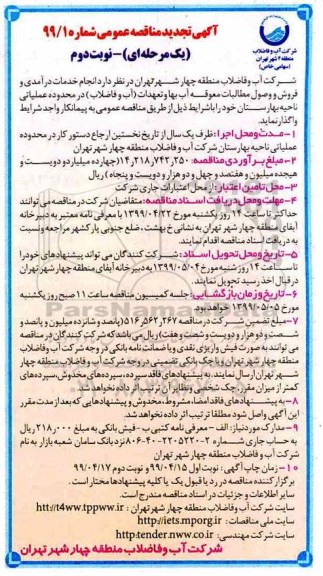 آگهی تجدید مناقصه عمومی شماره ۹۹/۱
(یک مرحله‌ای) - نوبت دوم
شرکت آب و فاضلاب
منطقه ۴ شهر تهران
(سهامی خاص)
شرکت آب وفاضلاب منطقه چهار شهر تهران در نظر دارد انجام خدمات درآمدی و
فروش و وصول مطالبات معوقه آب بها وتعهدات (آب و فاضلاب) در محدوده عملیاتی
ناحیه بهارستان خود را با شرایط ذیل از طریق مناقصه عمومی به پیمانکار واجد شرایط
واگذار نماید.
۱- مدت ومحل اجرا: ظرف یک سال از تاریخ نخستین ارجاع دستور کار در محدوده
عملیاتی ناحیه بهارستان شرکت آب و فاضلاب منطقه چهار شهر تهران
۲- مبلغ برآوردی مناقصه: ۱۴٫۲۱۸٫۷۴۲٫۲۵۰ (چهارده میلیارد و دویست و
هیجده میلیون و هفتصد و چهل و دو هزار و دویست و پنجاه) ریال
۳- محل تامین اعتبار: از محل اعتبارات جاری شرکت
۴- مهلت ومحل دریافت اسناد مناقصه: متقاضیان شرکت در مناقصه می توانند
حداکثر تا ساعت ۱۴ روز یکشنبه مورخ ۱۳۹۹/۰۴/۲۲ با معرفی نامه معتبر به دبیرخانه
آبفای منطقه چهار تهران به نشانی خ بهشت، ضلع جنوبی پارک شهر مراجعه ونسبت
به دریافت اسناد مناقصه اقدام نمایند.
۵- تاریخ ومحل تحویل اسناد: شرکت کنندگان می تواند پیشنهادهای خود را
تا ساعت ۱۴ روز شنبه مورخ ۱۳۹۹/۰۵/۰۴ به دبیرخانه آبفای منطقه چهار شهر تهران
در قبال اخذ رسید تحویل نمایند.
۶- تاریخ وزمان بازگشایی: جلسه کمیسیون مناقصه ساعت ۱۱ صبح روز یکشنبه
مورخ ۱۳۹۹/۰۵/۰۵ خواهد بود.
۷- مبلغ تضمین شرکت در مناقصه ۵۱۶٫۵۶۲٫۲۶۷ (پانصد و شانزده میلیون و پانصد و
شصت و دو هزار و دویست و شصت و هفت) ریال می باشد که شرکت کنندگان در مناقصه
می توانند به صورت فیش واریزی نقدی و یا ضمانت نامه بانکی در وجه شرکت آب وفاضلاب
منطقه چهار شهر تهران و یا چک بانکی تضمینی در وجه شرکت آب و فاضلاب منطقه چهار
شهر تهران ارسال نمایند. به پیشنهادهای فاقد سپرده، سپرده‌های مخدوش، سپرده‌های
کمتر از میزان مقرر، چک شخصی و نظایر آن ترتیب اثر داده نخواهد شد.
۸- به پیشنهادهای فاقد امضا، مشروط، مخدوش و پیشنهادهایی که بعد از مدت مقرر
این آگهی واصل شود مطلقا ترتیب اثر داده نخواهد شد.
۹- مدارک مورد نیاز: الف - معرفی نامه کتبی ب - فیش بانکی به مبلغ ۲۱۸٫۰۰۰ ریال
به حساب جاری ۲-۲۲۰۵۲۲۰-۴۰-۸۰۶ نزد بانک سامان شعبه بازار به نام
شرکت آب و فاضلاب منطقه چهار شهر تهران
۱۰- زمان چاپ آگهی: نوبت اول ۹۹/۰۴/۱۵ و نوبت دوم ۹۹/۰۴/۱۷
برگزار کننده مناقصه در رد یا قبول یک یا کلیه پیشنهادها مختار است.
سایر اطلاعات و جزئیات در اسناد مناقصه مندرج است.
سایت شرکت آب و فاضلاب منطقه ۴ شهر تهران: htt://t4ww.tppww.ir
سایت ملی مناقصات: http//iets.mporg.ir
سایت شرکت مهندسی: http:tender.nww.co.ir
شرکت آب و فاضلاب منطقه چهار شهر تهران